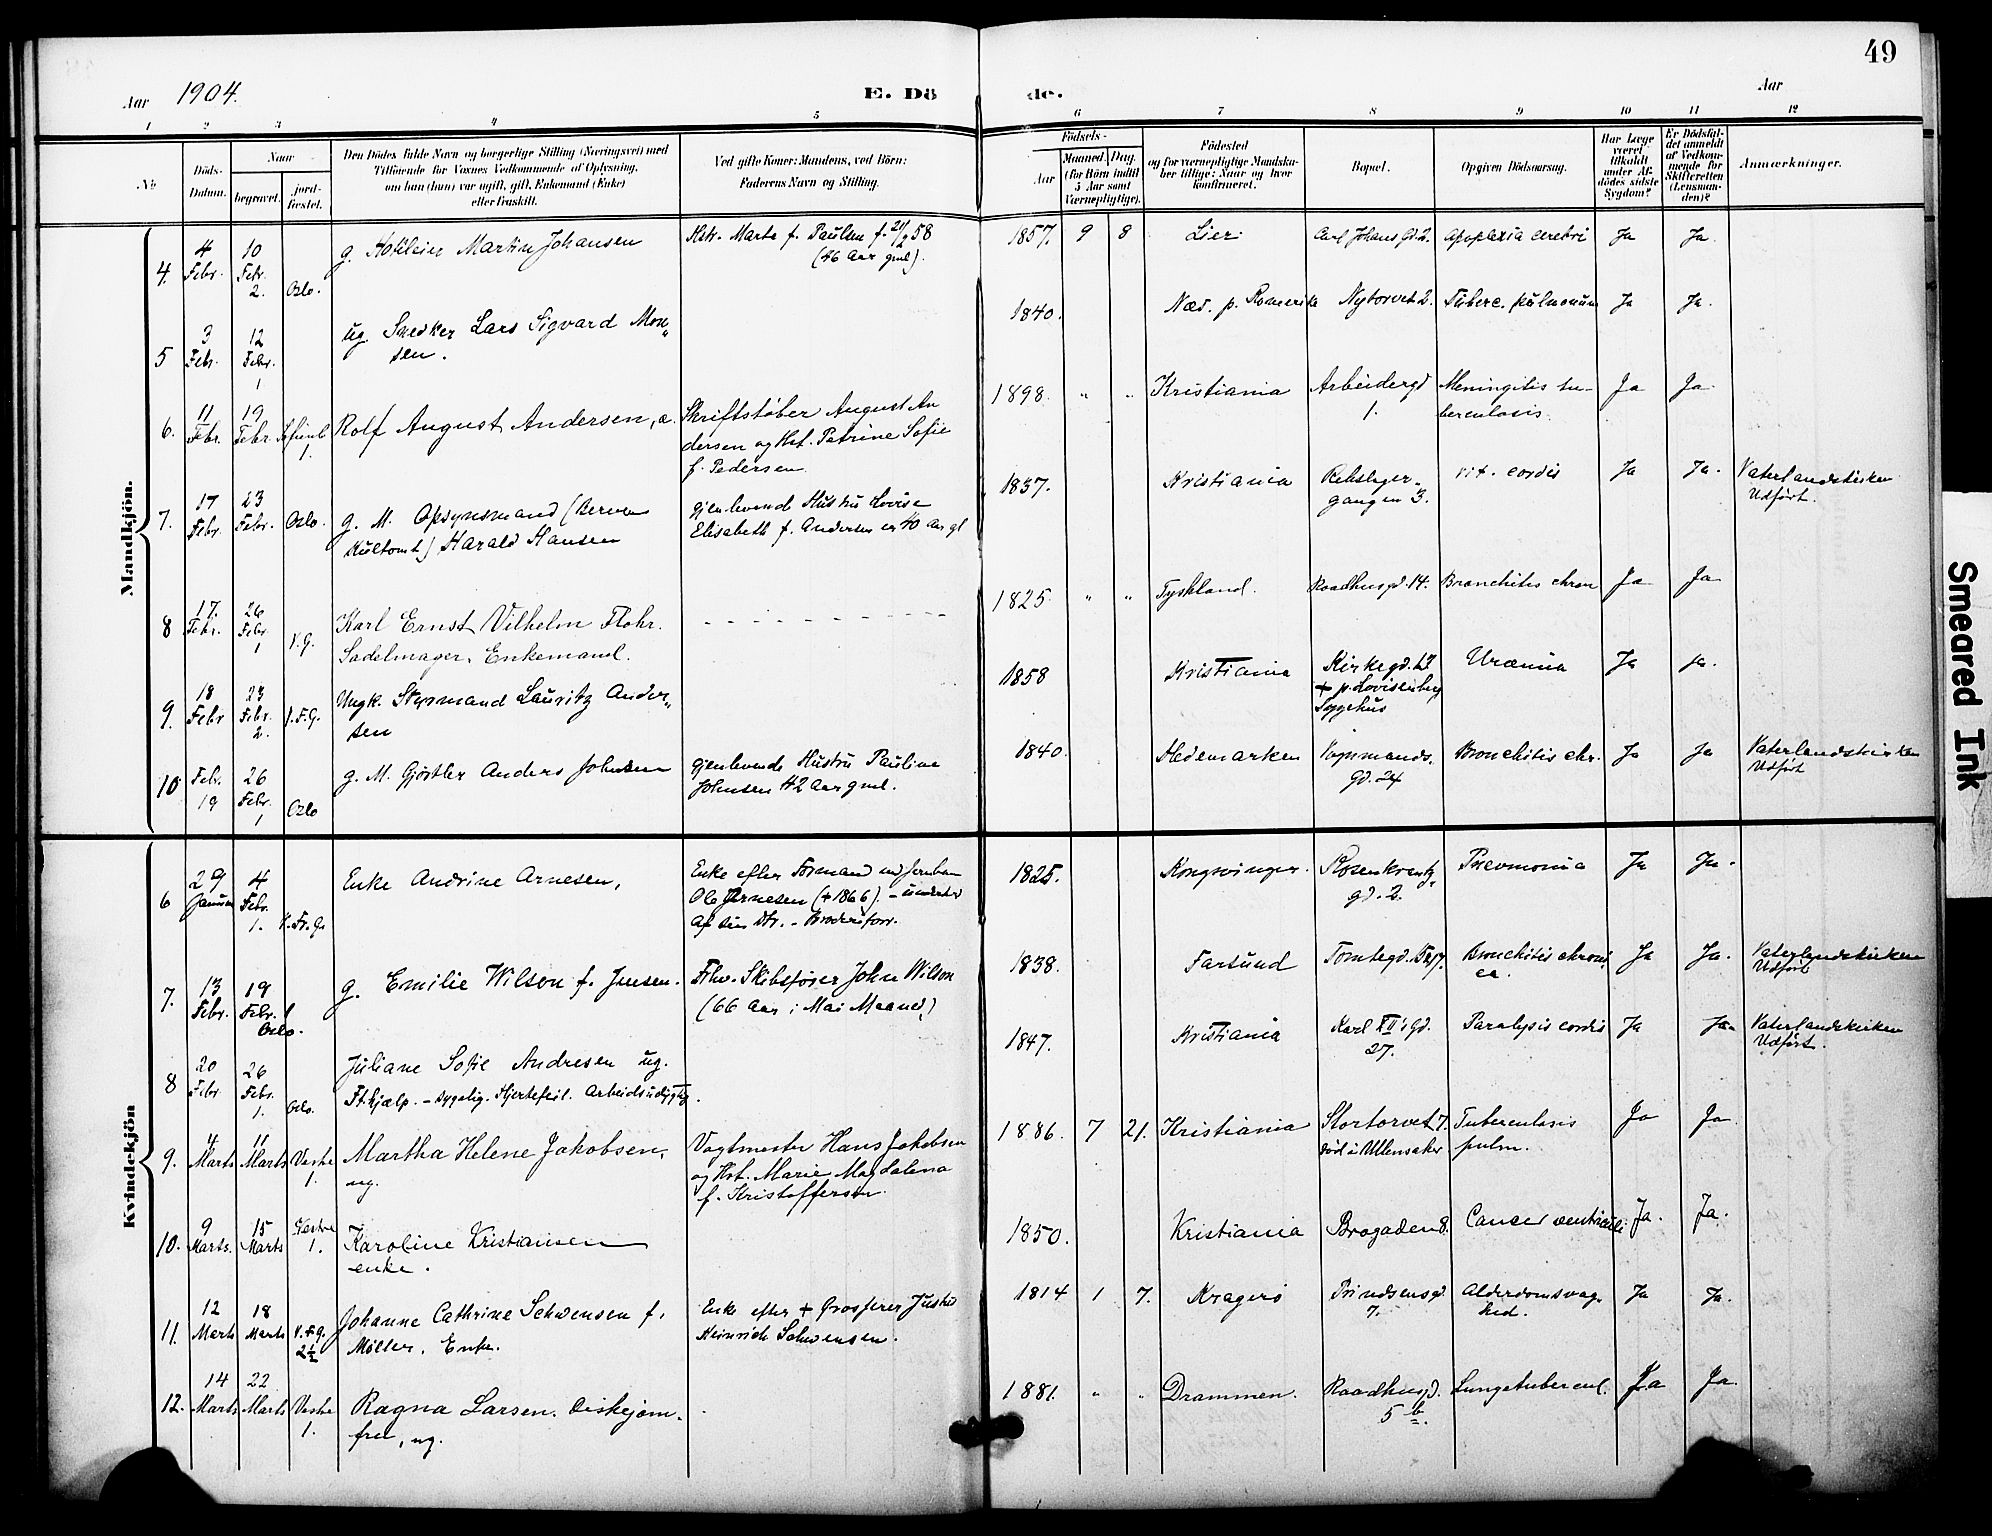 49
Aar 1904.
E. Dö de.
Aar
1 2 3 4 5 6 7 8 9 10 11 12
No
Döds-Datum.
Naar
begravet.
jord-fæstet.
Den Dödes fulde Navn og borgerlige Stilling (Næringsvei) med
Tilföiende for Voxnes Vedkommende af Oplysning,
om han (hun) var ugift, gift, Enkemand (Enke)
eller fraskilt.
Ved gifte Koner: Mandens, ved Börn:
Faderens Navn og Stilling.
Födsels-
Aar
Maaned. Dag.
(for Börn indtil 5 Aar samt Værnepligtige).
Födested
og for værnepligtige Mandskaber tillige: Naar og hvor konfirmeret.
Bopæl.
Opgiven Dödsaarsag.
Har Læge været tilkaldt under Afdødes sidste Sygdom?
Er Dödsfaldet anmeldt af Vedkommende for Skifteretten (Lensmanden)?
Anmærkninger.
Mandkjön.
4. 4 Febr. 10 Febr. 2. Oslo.
g. Martin Johansen
Hstr. Marte f. Paulsen f. 21/2 58
(46 Aar gml).
1857. 9 8 Lier Carl Johans Gd. 2. Apoplexia cerebri Ja Ja.
5 3 Febr. 12 Febr. 1
ug. Snedker Lars Sigvard Mon„
sen.
1840. Næs. p. Romerike Nytorvet 2. Tuberc. pulmonum Ja Ja.
6. 11 Febr. 19 Febr. 1.
Rolf August Andersen,
Skriftstøber August An
dersen og Hst. Petrine Sofie
f. Pedersen.
1898. „ „ Kristiania Arbeidergd 1. Meningitis tu-
berculosis. Ja Ja.
7. 17 Febr. 23 Febr. Oslo.
g. M. Opsynsmand
Harald Hansen
gjenlevende Hustru Lovise
Elisabeth f. Andersen er 40 Aar gl
1837. Kristiania Rebslager-
gangen 3. vit. cordis Ja Ja. Vaterlandskirken
Udført.
8 17. Febr. 26 Febr. 1 V.G.
Karl Ernst Vilhelm Flohr.
Sadelmager. Enkemand.
1825. „ „ Tyskland. Raadhusgd. 14. Bronchitis chron Ja Ja
9. 18 Febr 23 Febr. 2. V.F.G.
Ungk. Styrmand Lauritz Ander„
sen
1858 Kristiania Kirkegd. 17
+ p. Lovisenberg
Sygehus Uræmia Ja Ja.
10 Febr. 19 26 Febr. 1 Oslo
g. M. Gjørtler Anders Johnsen
gjenlevende Hustru Pauline
Johnsen 42 Aar gml.
1840. Hedemarken Vognmands.
gd. 24 Bronchitis chr. Ja Ja Vaterlandskirken
Udført
Kvindekjön
6 29 Januar 4 Febr. 1. V. Fr. G.
Enke Andrine Arnesen,
Enke efter Formand ved Jernban
Ole Arnesen (+ 1866). –
af sin
1825. Kongsvinger. Rosenkrantz
gd. 2. Pneumonia Ja Ja.
7. 13 Febr. 19 Febr. 1 Oslo.
g. Emilie Wilson f. Jensen.
Fhv. Skibsfører John Wilson
(66 Aar i Mai Maaned)
1838. Farsund Tomtegd. Bronchitis chroni
ca. Ja Ja. Vaterlandskirken
Udført
8 20 Febr 26 Febr. 1. Oslo.
Juliane Sofie Andresen ug.
Ft.hjælp. – sygelig. Hjertefeil. Arbeidsudygtig.
1847. Kristiania Karl XII's Gd.
27. Paralysis cordis Ja Ja. Vaterlandskirken
Udført.
9. 4 Marts 11 Marts Vestre 1.
Martha Helene Jakobsen,
ug.
Vagtmester Hans Jakobsen
og Hst. Marie Magdalena
f. Kristoffersen.
1886. 7 21. Kristiania Stortorvet 7.
død i Ullensaker Tuberculosis
pulm. Ja Ja.
10. 9 Marts. 15 Marts Vestre 1.
Karoline Kristiansen
enke.
1850. Kristiania Brogaden 8. Cancer ventriculi Ja. Ja.
11. 12 Marts 18 Marts V.F.G. 2½
Johanne Cathrine Schwensen f.
Möller. Enke.
Enke efter + Grosserer Justus
Heinrich Schwensen.
1814 1 7. Kragerö Prindsensgd.
7. Alderdomssvag-
hed. Ja Ja.
12. 14 Marts 22 Marts Vestre 1.
Ragna Larsen. Diskejom-
fru, ug.
1881. „ „ Drammen. Raadhusgd.
5 b. Lungetubercul. Ja Ja.
Smeared Ink